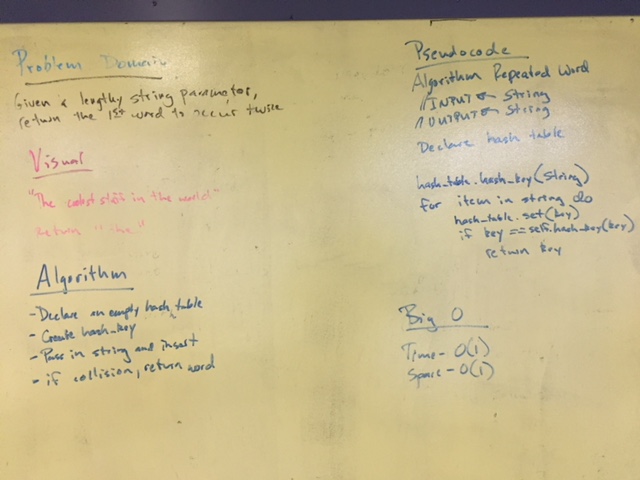 Problem Domain
Given a lengthy string parameter,
return the 1st word to occur twice
Visual
"The coolest in the world"
Return "the"
Algorithm
- Declare an empty hash table
- Create hash-key
- Pass in string and insert
- if collision, return word
Pseudocode
Algorithm Repeated Word
// INPUT ← String
// OUTPUT ← String
Declare hash table
hash_table.hash_key(string)
for item in string do
hash_table.set(key)
if key == self.hash_key(key)
return key
Big O
Time - O(1)
Space - O(1)